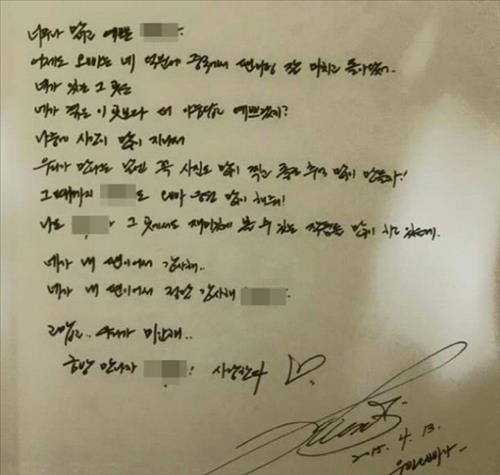 너무나 맑고 예쁜
어제도 오빠는 네 덕분에 중국에서 팬미팅 잘 마치고 돌아왔어..
네가 있는 그 곳은
네가 걷는 이 곳보다 더 아름답고 예쁘겠지?
나중에 시간이 많이 지나서
우리가 만나는 날엔 꼭 사진도 많이 찍고 좋은 추억 많이 만들자!
그때까지 도 오빠 응원 많이 해줘!
나도 그 곳에서도 재미있게 볼 수 있는 작품들 많이 하고 있을게.
네가 내 팬이어서 감사해..
네가 내 팬이어서 정말 감사해
고맙고.. 미안해..
금방 만나자 ! 사랑한다 ♡
2015. 4. 13.